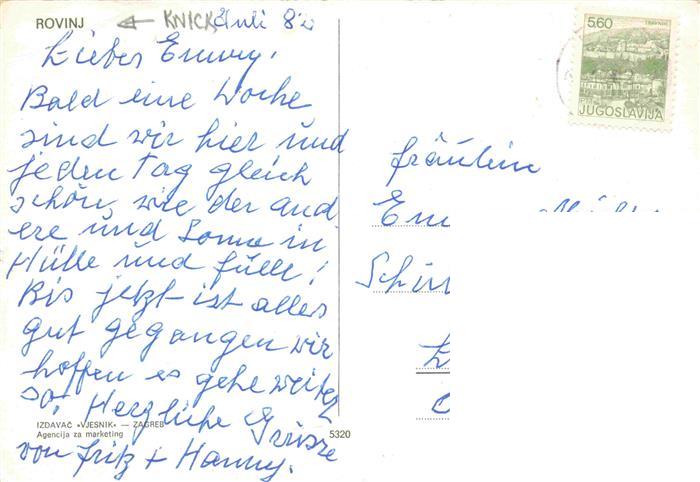 ROVINJ ← KNICK Juli 82
Liebes Emmy,
Bald eine Woche
sind wir hier und
jeden Tag gleich
schön, wie der and
ere und Sonne in
Hülle und fülle!
Bis jetzt ist alles
gut gegangen wir
hoffen es gehe weiter
so, Herzliche Grüsse
von Fritz + Hanny.
IZDAVAČ «VJESNIK» — ZAGREB
Agencija za marketing
5320
5.60
JUGOSLAVIJA
Fräulein